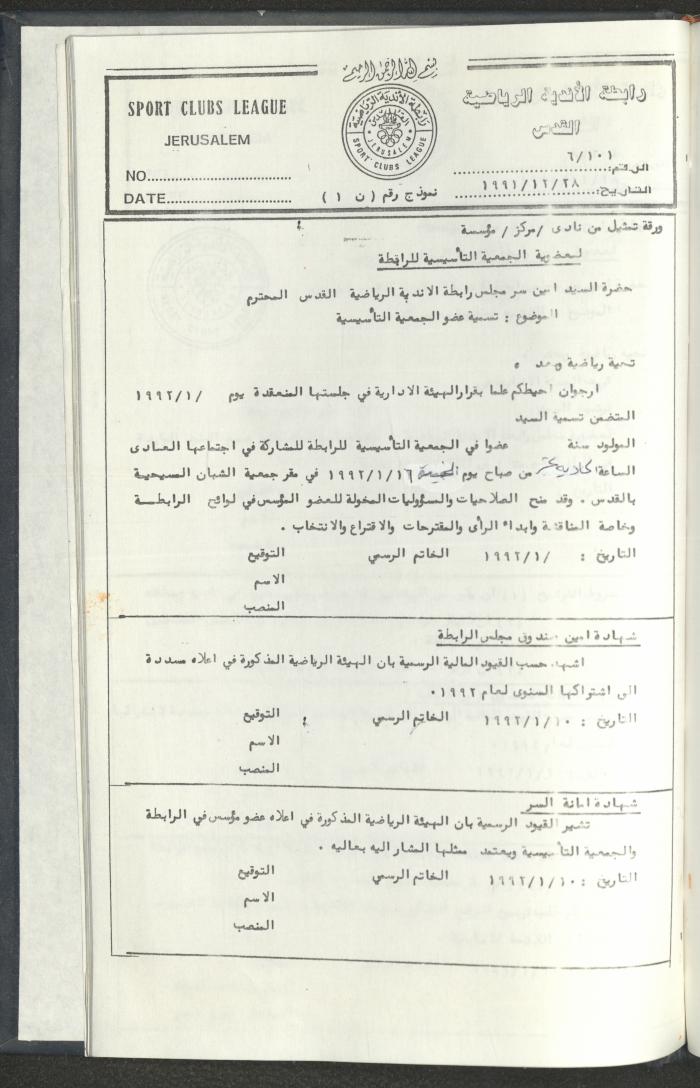 بسم الله الرحمن الرحيم
SPORT CLUBS LEAGUE
JERUSALEM
NO
DATE
رابطة الأندية الرياضية
القدس
JERUSALEM
SPORT CLUBS LEAGUE
الرقم: ٦/١٠١
التاريخ: ١٩٩١/١٢/٢٨
نموذج رقم ( ن ١ )
ورقة تمثيل من نادى / مركز / مؤسسة
لعضوية الجمعية التأسيسية للرابطة
حضرة السيد امين سر مجلس رابطة الاندية الرياضية القدس المحترم
الموضوع : تسمية عضو الجمعية التأسيسية
تحية رياضية وبعد ،
ارجوان احيطكم علما بقرارالهيئة الادارية في جلستها المنعقدة يوم / ١٩٩٢/١
المتضمن تسمية السيد
المولود سنة عضوا في الجمعية التأسيسية للرابطة للمشاركة في اجتماعها العادى
الساعة الحادية عشر من صباح يوم ١٩٩٢/١/١٦ في مقر جمعية الشبان المسيحية
بالقدس . وقد منح الصلاحيات والسؤوليات المخولة للعضو المؤسس في لوائح الرابطة
وخاصة المناقشة وابداء الرأى والمقترحات والاقتراع والانتخاب .
التاريخ : / ١٩٩٢/١ الخاتم الرسمي التوقيع
الاسم
المنصب
شهادة امين صندوق مجلس الرابطة
اشهد حسب القيود المالية الرسمية بان الهيئة الرياضية المذكورة في اعلاه مسددة
الى اشتراكها السنوى لعام ١٩٩٢ .
التاريخ : ١٩٩٢/١/١٠ الخاتم الرسمي التوقيع
الاسم
المنصب
شهادة امانة السر
تشير القيود الرسمية بان الهيئة الرياضية المذكورة في اعلاه عضو مؤسس في الرابطة
والجمعية التأسيسية ويعتمد ممثلها المشار اليه بعاليه .
التاريخ : ١٩٩٢/١/١٠ الخاتم الرسمي التوقيع
الاسم
المنصب